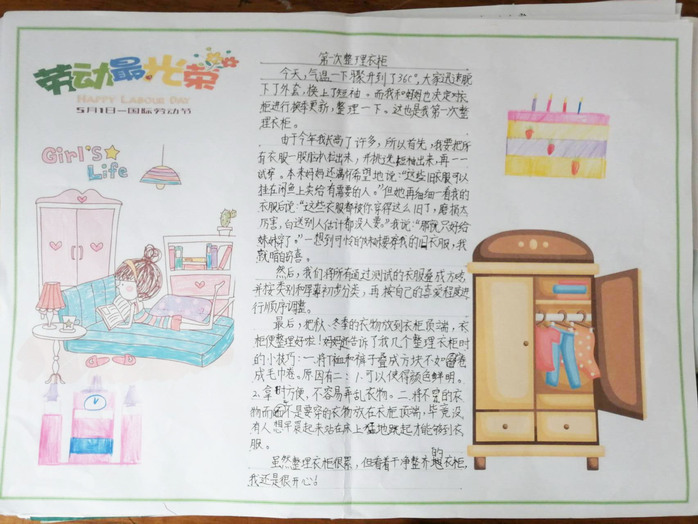 劳动最光荣
HAPPY LABOUR DAY
5月1日—国际劳动节
GirL's
Life
第一次整理衣柜
今天，气温一下子骤升到了36℃。大家迅速脱
下了外套，换上了短袖。而我和妈妈也决定给衣
柜进行换季更新，整理一下。这也是我第一次整
理衣柜。
由于今年我长高了许多，所以首先，我要把所
有衣服一股脑儿拿出来，并挑选
试穿。本来妈妈还满怀希望地说："这些旧衣服可以
挂在闲鱼上卖给有需要的人。"但她再细细一看我的
衣服后说："这些衣服都被你穿得这么旧了，磨损太
厉害，白送别人估计都没人要。"我说："那就只好给
妹妹穿了。"一想到可怜的妹妹要穿我的旧衣服，我
就暗自窃喜。
然后，我们将所有通过测试的衣服叠成方块
并按类别和厚薄初步分类，再按自己的喜爱程度进
行顺序调整。
最后，把秋、冬季的衣物放到衣柜顶端，衣
柜便整理好啦！妈妈还告诉了我几个整理衣柜时
的小技巧：一.将T恤和裤子叠成方块不如卷
成毛巾卷。原因有二：1.可以使得颜色鲜明。
2.拿时方便，不容易弄乱衣物。二.将不当季的衣
物而不是要穿的衣物放在衣柜顶端，毕竟没
有人想早晨起来站在床上猛地跳起才能够到衣
服。
虽然整理衣柜很累，但看着干净整齐的衣柜，
我还是很开心！